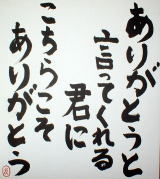 ありがとうと
言ってくれる
君に
こちらこそ
ありがとう